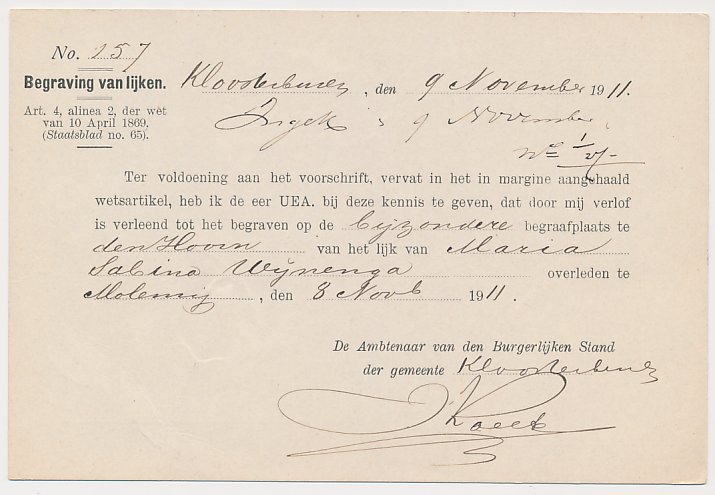 No. 257
Begraving van lijken.
Kloosterburen, den 9 November 1911.
Art. 4, alinea 2, der wet
van 10 April 1869.
(Staatsblad no. 65).
Ingek. 9 November
Ter voldoening aan het voorschrift, vervat in het in margine aangehaald
wetsartikel, heb ik de eer UEA. bij deze kennis te geven, dat door mij verlof
is verleend tot het begraven op de bijzondere begraafplaats te
den Hoorn van het lijk van Maria
Sabina Wijnenga overleden te
, den 8 Novb 1911.
De Ambtenaar van den Burgerlijken Stand
der gemeente Kloosterburen